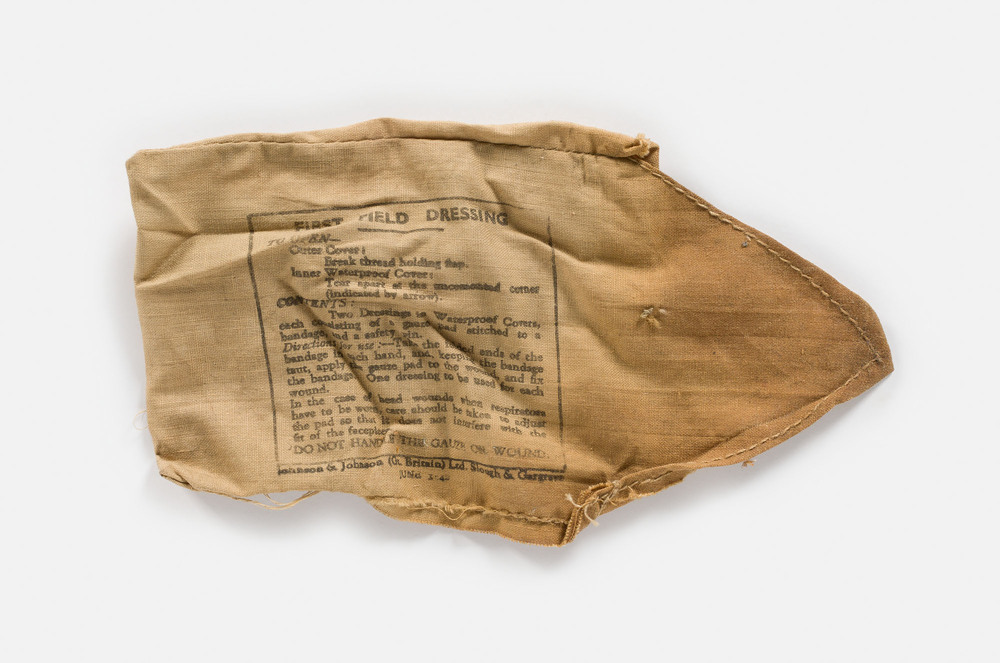 FIRST FIELD DRESSING
TO OPEN—
Outer Cover:
Break thread holding flap.
Inner Waterproof Cover:
Tear apart at the uncemented corner
(indicated by arrow).
CONTENTS:
Two Dressings in Waterproof Covers,
each consisting of a gauze pad stitched to a
bandage, and a safety pin.
Directions for use:—Take the folded ends of the
bandage in each hand, and, keeping the bandage
taut, apply the gauze pad to the wound and fix
the bandage. One dressing to be used for each
wound.
In the case of head wounds when respirators
have to be worn, care should be taken to adjust
the pad so that it does not interfere with the
fit of the facepiece.
DO NOT HANDLE THE GAUZE OR WOUND.
Johnson & Johnson (Gt. Britain) Ltd. Slough & Gargrave